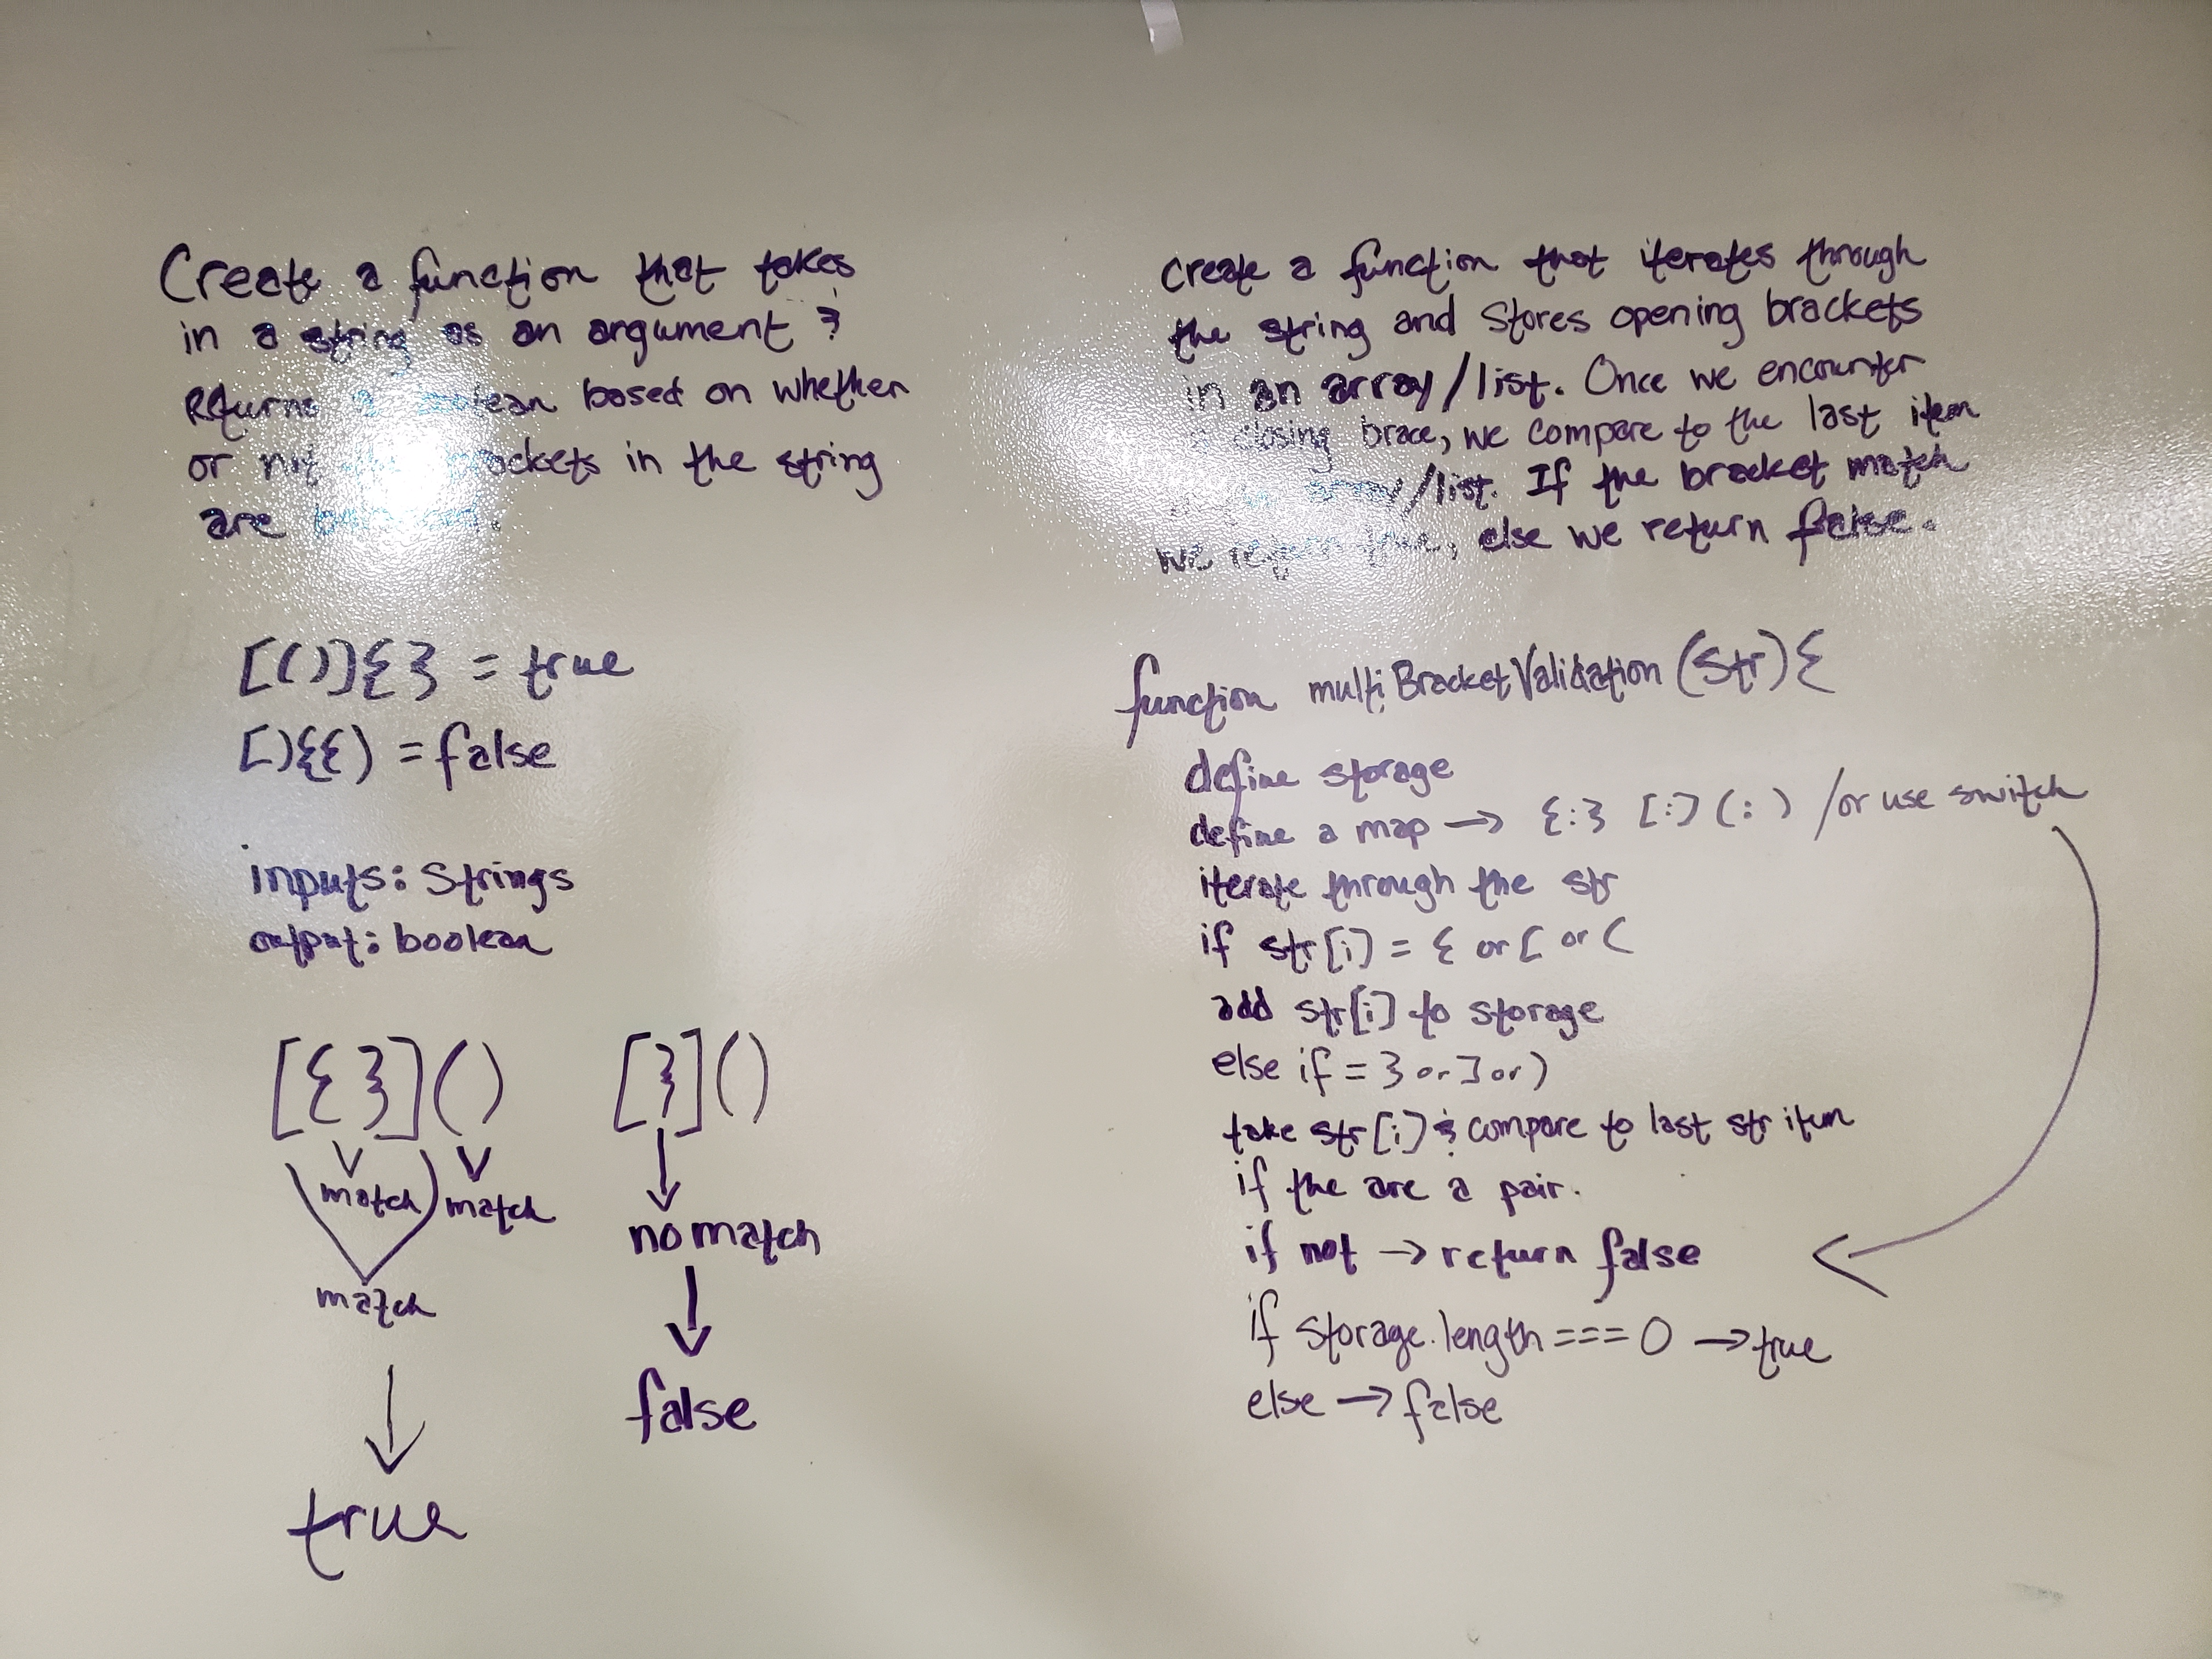 Create a function that takes
in a string as an argument &
Returns a boolean based on whether
or not brackets in the string
are
[()]{} = true
[){{) = false
inputs: Strings
output: boolean
[{}]() [}]()
match match
no match
match
false
true
create a function that iterates through
the string and stores opening brackets
in an array/list. Once we encounter
closing brace, we compare to the last item
array/list. If the bracket match
we return true, else we return false.
function multiBracketValidation (str) {
define storage
define a map → {:} [:] (:) /or use switch
iterate through the str
if str[i] = { or [ or (
add str[i] to storage
else if = } or ] or )
take str[i] & compare to last str item
if the are a pair.
if not → return false
if storage.length === 0 → true
else → false